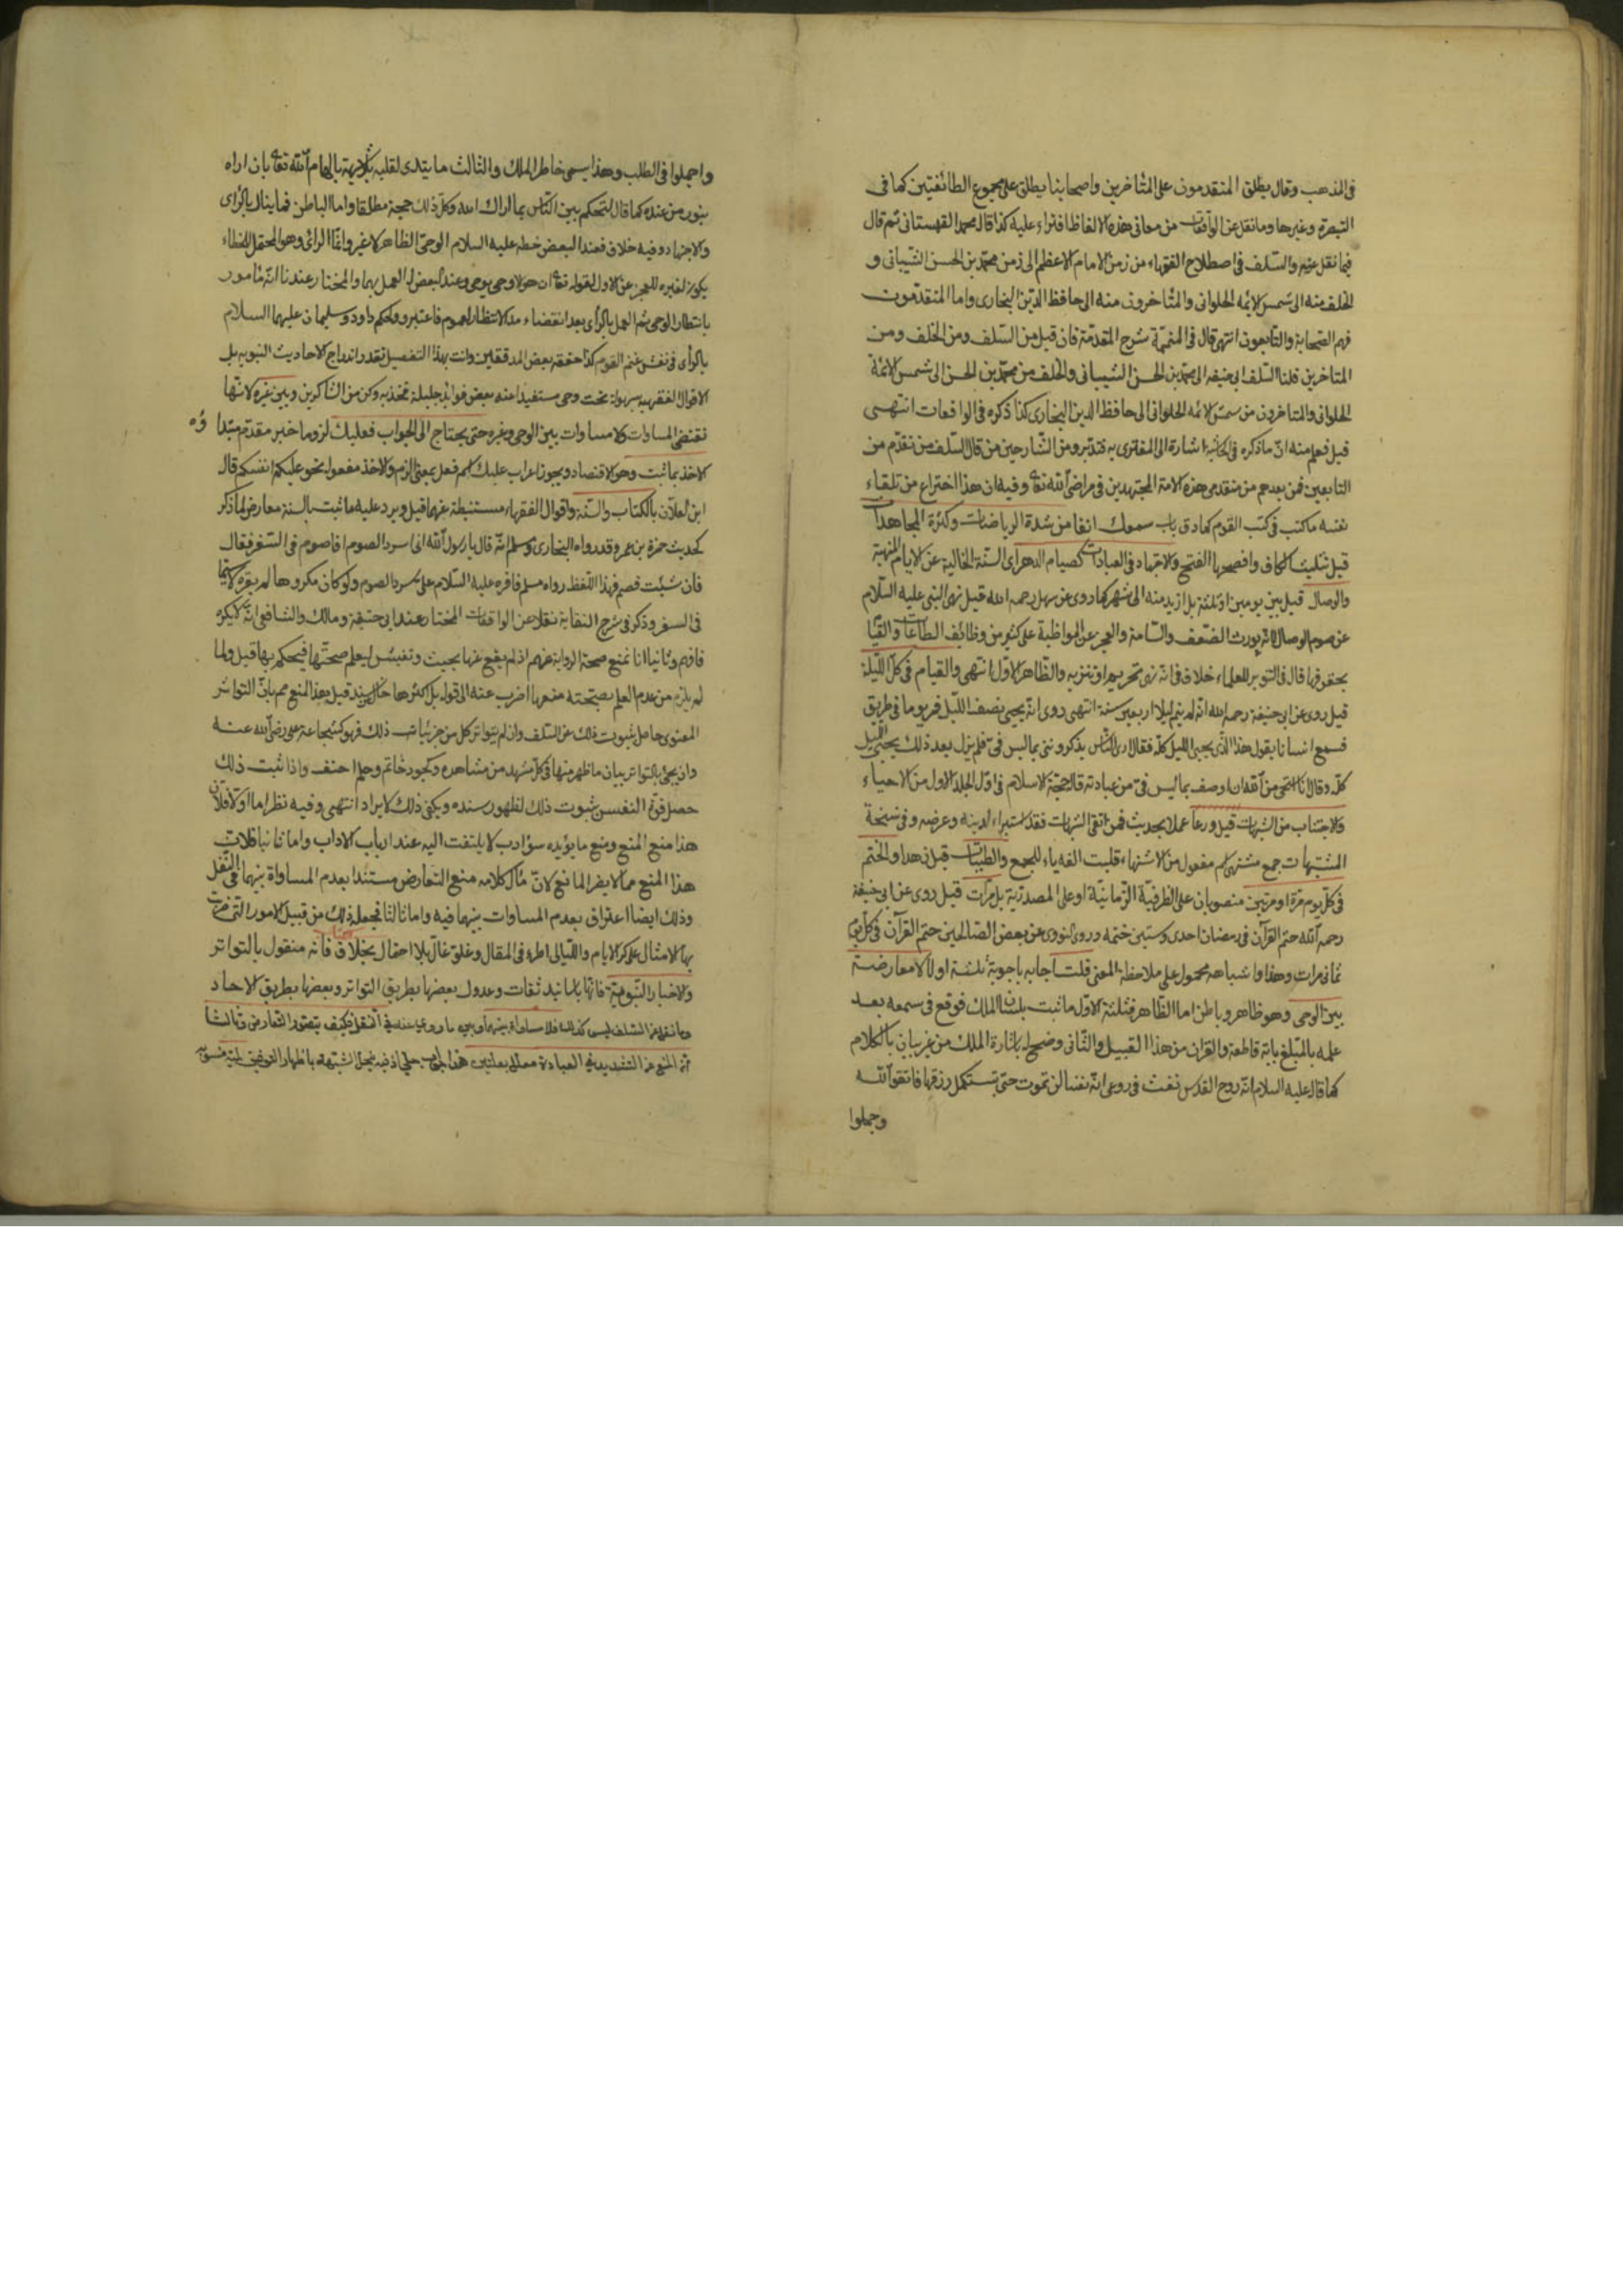 في المذهب وقال يطلق المتقدمون على المتأخرين واصحابنا يطلق على مجموع الطائفتين كما في
التبصرة وغيرها وما نقل عن الواقعات من معاني هذه الالفاظ افتراء عليه كذا قاله محمد القهستاني ثم قال
فيما نقل عنه والسلف في اصطلاح الفقهاء من زمن الامام الاعظم الى زمن محمد بن الحسن الشيباني و
الخلف منه الى شمس الائمه الحلواني والمتأخرون منه الى حافظ الدين البخاري واما المتقدمون
فهم الصحابة والتابعون انتهى قال في المتممة شرح المقدمة فان قيل من السلف ومن الخلف ومن
المتاخرين قلنا السلف ابي حنيفه الى محمد بن الحسن الشيباني والخلف من محمد بن الحسن الى شمس الائمة
الحلواني والمتاخرون من شمس الائمه الحلواني الى حافظ الدين البخاري كذا ذكره في الواقعات انتهى
قيل فعلم منه ان ما ذكره في الحاشية اشارة الى المفترى به فتدبر ومن الشارحين من قال السلف من تقدم من
التابعين فمن بعدهم من متقدمي هذه الامة المجتهدين في مراضي الله تعه وفيه ان هذا اختراع من تلقاء
نفسه ما كتب في كتب القوم كما دق باب سموك انفا من شدة الرياضات وكثرة المجاهدات
قيل تثليث الكاف وافصحها الفتح والاجتهاد في العبادات كصيام الدهر اي السنة الخالية عن الايام المنهية
والوصال قيل بين يومين او ثلثة بل ازيد منه الى شهر كما روى عن سهل رحمه الله قيل نهى النبي عليه السلام
عن صوم الوصال لانه يورث الضعف والسامة والعجز عن المواظبة على كثير من وظائف الطاعات والقيا
بحقوقها قال في التنوير للعلماء خلاف في انه نهى تحريم او تنزيه والظاهر الاول انتهى والقيام في كل الليلة
قيل روى عن ابي حنيفة رحمه الله انه لم ينم ليلا اربعين سنة انتهى روى انه يحيى نصف الليل فمر يوما في طريق
فسمع انسانا يقول هذا الذي يحيى الليل كله فقال ارى الناس يذكرونني بما ليس في فلم يزل بعد ذلك يحيي الليل
كله وقال انا استحي من الله ان اوصف بما ليس في من عبادته قال حجة الاسلام في اول الجلد الاول من الاحياء
والاجتناب من الشبهات قيل ورعا عملا بحديث فمن اتقى الشبهات فقد استبراء لدينه وعرضه وفي نسخة
المشتبهات جمع مشتهى اسم مفعول من الاشتهاء قلبت الفه ياء للجمع والطيبات قيل زهدا والختم
في كل يوم مرة او مرتين منصوبان على الظرفية الزمانية او على المصدرية بل مرات قيل روى عن ابي حنيفة
رحمه الله ختم القرآن في رمضان احدى وستين ختمه وروى النووي عن بعض الصالحين ختم القرآن في كل يوم
ثماني مرات وهذا واشباهه محمول على ملاحظة المعنى قلت اجابه باجوبة ثلثة اولا لا معارضة
بين الوحى وهو ظاهر وباطن اما الظاهر فثلثة الاول ما ثبت بلسان الملك فوقع في سمعه بعد
علمه بالمبلغ باية قاطعة والقران من هذا القبيل والثاني وضح له باشارة الملك من غير بيان بالكلام
كما قال عليه السلام انه روح القدس نفث في روعي انه نفسا لن تموت حتى تستكمل رزقها فاتقوا الله
وجملوا
واجملوا في الطلب وهذا يسمى خاطر الملك والثالث ما يتبدى لقلبه بلا شبهة بالهام الله تعه بان اراه
بنور من عنده كما قال لتحكم بين الناس بما اراك الله وكل ذلك حجة مطلقا واما الباطن فما ينال بالرأى
والاجتهاد وفيه خلاف فعند البعض حظه عليه السلام الوحى الظاهر لا غير وانما الرأى وهو المحتمل للخطاء
يكون لغيره للعجز عن الاول لقوله تعه ان هو الا وحى يوحى وعند البعض له العمل بهما والمختار عندنا انه مأمور
بانتظار الوحى ثم العمل بالرأى بعد انقضاء مدة الانتظار لعموم فاعتبروا ولحكم داود وسليمان عليهما السلام
بالرأى في نفش غنم القوم كذا حققه بعض المدققين وانت بهذا التفصيل تقدر اندراج الاحاديث النبويه بل
الاقوال الفقهيه بسهولة تحت وحى مستفيدا عنه بعض فوائد جليلة تخذ به وكن من الشاكرين وبين غيره لانها
تقتضي المساوات ولا مساوات بين الوحى وغيره حتى يحتاج الى الجواب فعليك لزوما خبر مقدم مبتدا ؤه
الاخذ بما ثبت وهو الاقتصاد ويجوز اعراب عليك اسم فعل بمعنى الزم والاخذ مفعوله نحو عليكم انفسكم قال
ابن لعلان بالكتاب والسنة واقوال الفقهاء مستنبطة عنهما قيل ويرد عليه ما ثبت بالسنة معارض لما ذكر
كحديث حمزة بن عمرو قد رواه البخاري ومسلم انه قال يا رسول الله اني اسرد الصوم افاصوم في السفر فقال
فان شئت فصم فهذا اللفظ رواه مسلم فاقره عليه السلام على سرد الصوم ولو كان مكروها لم يقره لا سيما
في السفر وذكر في شرح النقاية نقلا عن الواقعات المختار عند ابي حنيفة ومالك والشافعي انه لا يكره
فافهم وثانيا انا نمنع صحة الرواية عنهم اذ لم يقع عنها بحيث وتفتيش ليعلم صحتها فيحكم بها قيل ولما
لم يلزم من عدم العلم بصحته منعها اضرب عنه الى قوله بل اكثرها خال عن سند قيل هذا المنع مم بان التواتر
المعنوى حاصل بثبوت ذلك عن السلف وان لم يتواتر كل من جزئيات ذلك فهو كشجاعة على رضي الله عنه
وان يجئ بالتواتر بيان ما ظهر منها في كل مشهد من مشاهده وكجود خاتم وحلم احنف واذا ثبت ذلك
حصل قوة النفس بثبوت ذلك لظهور سنده ويكفي ذلك لايراد انتهى وفيه نظر اما اولا فلان
هذا منع المنع ومنع ما يؤيده سؤ ادب لا يلتفت اليه عند ارباب الاداب واما ثانيا فلان
هذا المنع مما لا يضر المانع لان مآل كلامه منع التعارض مستندا بعدم المساواة بينهما في النقل
وذلك ايضا اعتراف بعدم المساوات بينهما فيه واما ثالثا فجعله ذلك من قبيل الامور التي ضربت
بها الامثال على كر الايام والليالي اطراء في المقال وغلو غال بلا احتمال بخلاف فانه منقول بالتواتر
والاخبار النبوية فانها باسانيد ثقات وعدول بعضها بطريق التواتر وبعضها بطريق الاحاد
وما نقل عن السلف ليس كذلك فلا مساواة بينهما وبين ما روى عنه في النقل فكيف يتصور التعارض وثالثا
ان المنع عن التشديد في العبادة معلل بعلتين هذا